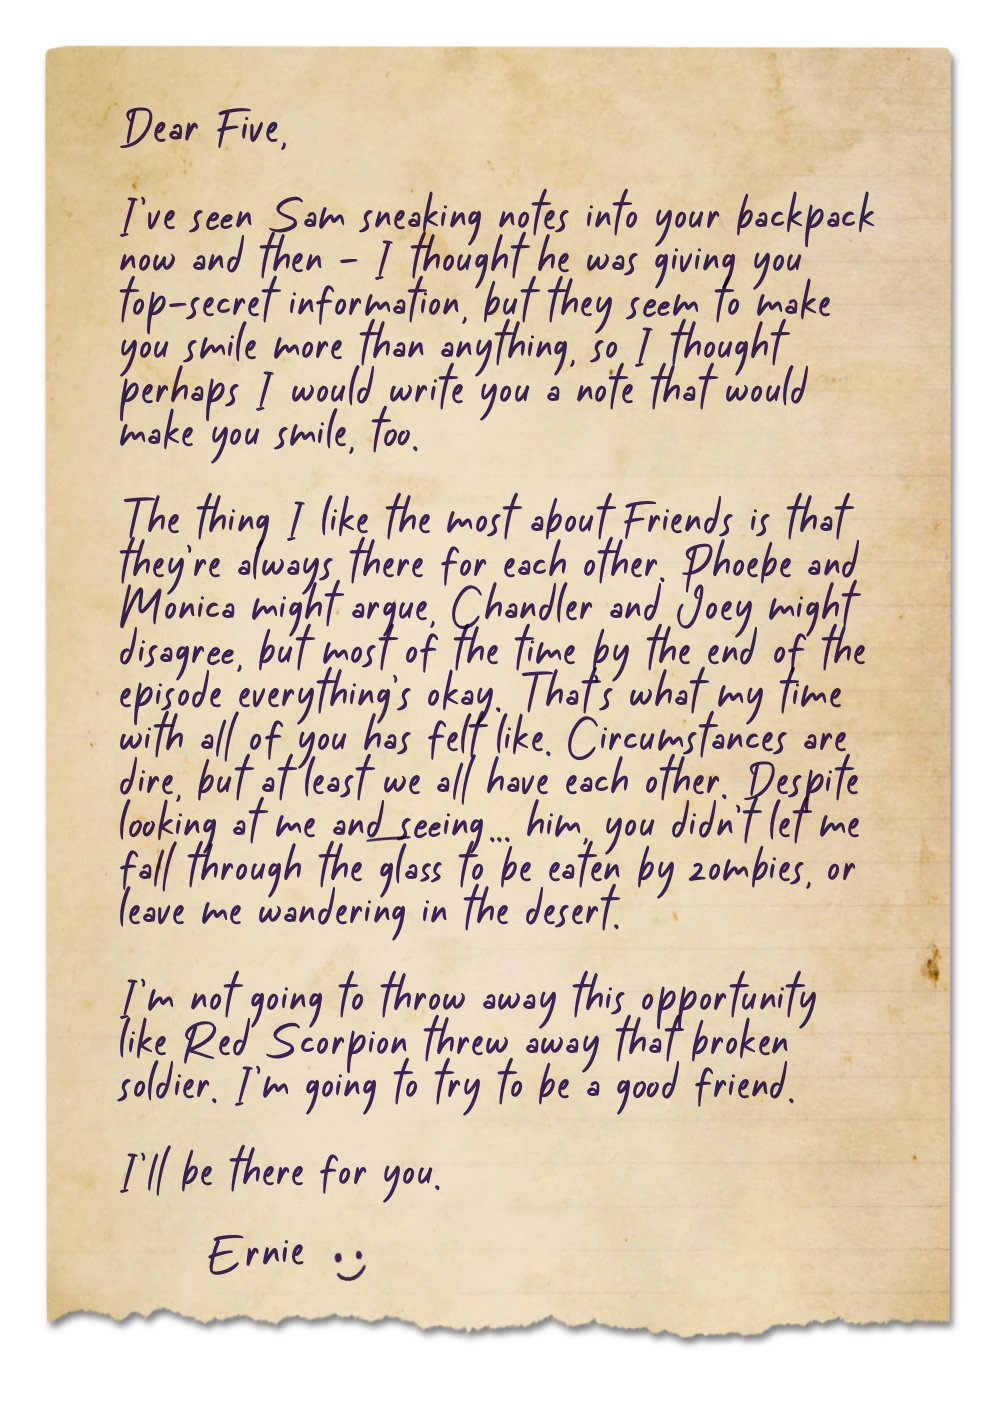 Dear Five,
I've seen Sam sneaking notes into your backpack
now and then - I thought he was giving you
top-secret information, but they seem to make
you smile more than anything, so I thought
perhaps I would write you a note that would
make you smile, too.
The thing I like the most about Friends is that
they're always there for each other. Phoebe and
Monica might argue, Chandler and Joey might
disagree, but most of the time by the end of the
episode everything's okay. That's what my time
with all of you has felt like. Circumstances are
dire, but at least we all have each other. Despite
looking at me and seeing... him, you didn't let me
fall through the glass to be eaten by zombies, or
leave me wandering in the desert.
I'm not going to throw away this opportunity
like Red Scorpion threw away that broken
soldier. I'm going to try to be a good friend.
I'll be there for you.
Ernie